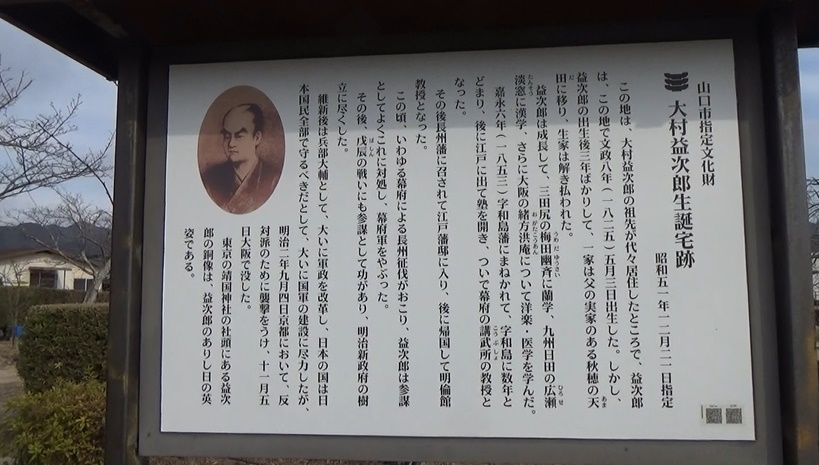 山口市指定文化財
大村益次郎生誕宅跡
昭和五一年一二月二一日指定
この地は、大村益次郎の祖先が代々居住したところで、益次郎
は、この地で文政八年（一八二五）五月三日出生した。しかし、
益次郎の出生後三年ばかりして、一家は父の実家のある秋穂の天
田に移り、生家は解き払われた。
益次郎は成長して、三田尻の梅田幽斉に蘭学、九州日田の広瀬
淡窓に漢学、さらに大阪の緒方洪庵について洋楽・医学を学んだ。
嘉永六年（一八五三）宇和島藩にまねかれて、宇和島に数年と
どまり、後に江戸に出て塾を開き、ついで幕府の講武所の教授と
なった。
その後長州藩に召されて江戸藩邸に入り、後に帰国して明倫館
教授となった。
この頃、いわゆる幕府による長州征伐がおこり、益次郎は参謀
としてよくこれに対処し、幕府軍をやぶった。
その後、戊辰の戦いにも参謀として功があり、明治新政府の樹
立に尽くした。
維新後は兵部大輔として、大いに軍政を改革し、日本の国は日
本国民全部で守るべきだとして、大いに国軍の建設に尽力したが、
明治二年九月四日京都において、反
対派のために襲撃をうけ、十一月五
日大阪で没した。
東京の靖国神社の社頭にある益次
郎の銅像は、益次郎のありし日の英
姿である。